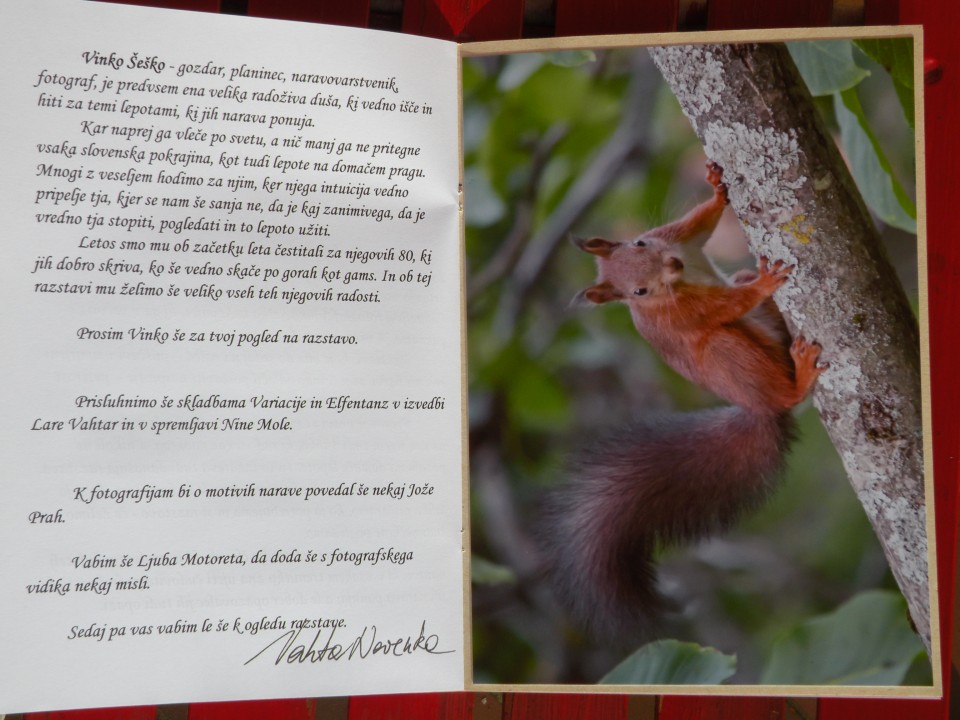 Vinko Šeško - gozdar, planinec, naravovarstvenik,
fotograf, je predvsem ena velika radoživa duša, ki vedno išče in
hiti za temi lepotami, ki jih narava ponuja.
Kar naprej ga vleče po svetu, a nič manj ga ne pritegne
vsaka slovenska pokrajina, kot tudi lepote na domačem pragu.
Mnogi z veseljem hodimo za njim, ker njega intuicija vedno
pripelje tja, kjer se nam še sanja ne, da je kaj zanimivega, da je
vredno tja stopiti, pogledati in to lepoto užiti.
Letos smo mu ob začetku leta čestitali za njegovih 80, ki
jih dobro skriva, ko še vedno skače po gorah kot gams. In ob tej
razstavi mu želimo še veliko vseh teh njegovih radosti.
Prosim Vinko še za tvoj pogled na razstavo.
Prisluhnimo še skladbama Variacije in Elfentanz v izvedbi
Lare Vahtar in v spremljavi Nine Mole.
K fotografijam bi o motivih narave povedal še nekaj Jože
Prah.
Vabim še Ljuba Motoreta, da doda še s fotografskega
vidika nekaj misli.
Sedaj pa vas vabim le še k ogledu razstave.
Vahta Nevenka